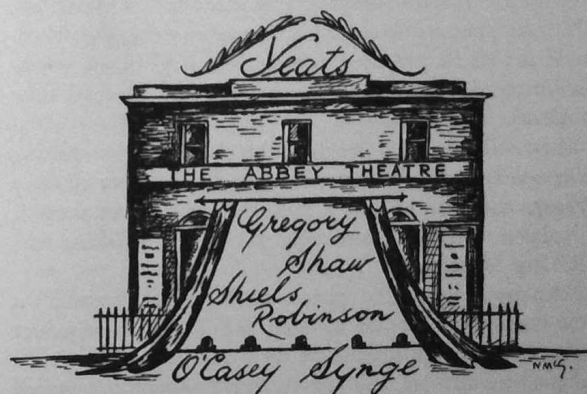 Yeats
THE ABBEY THEATRE
Gregory
Shaw
Shiels
Robinson
O'Casey Synge
NMcG.